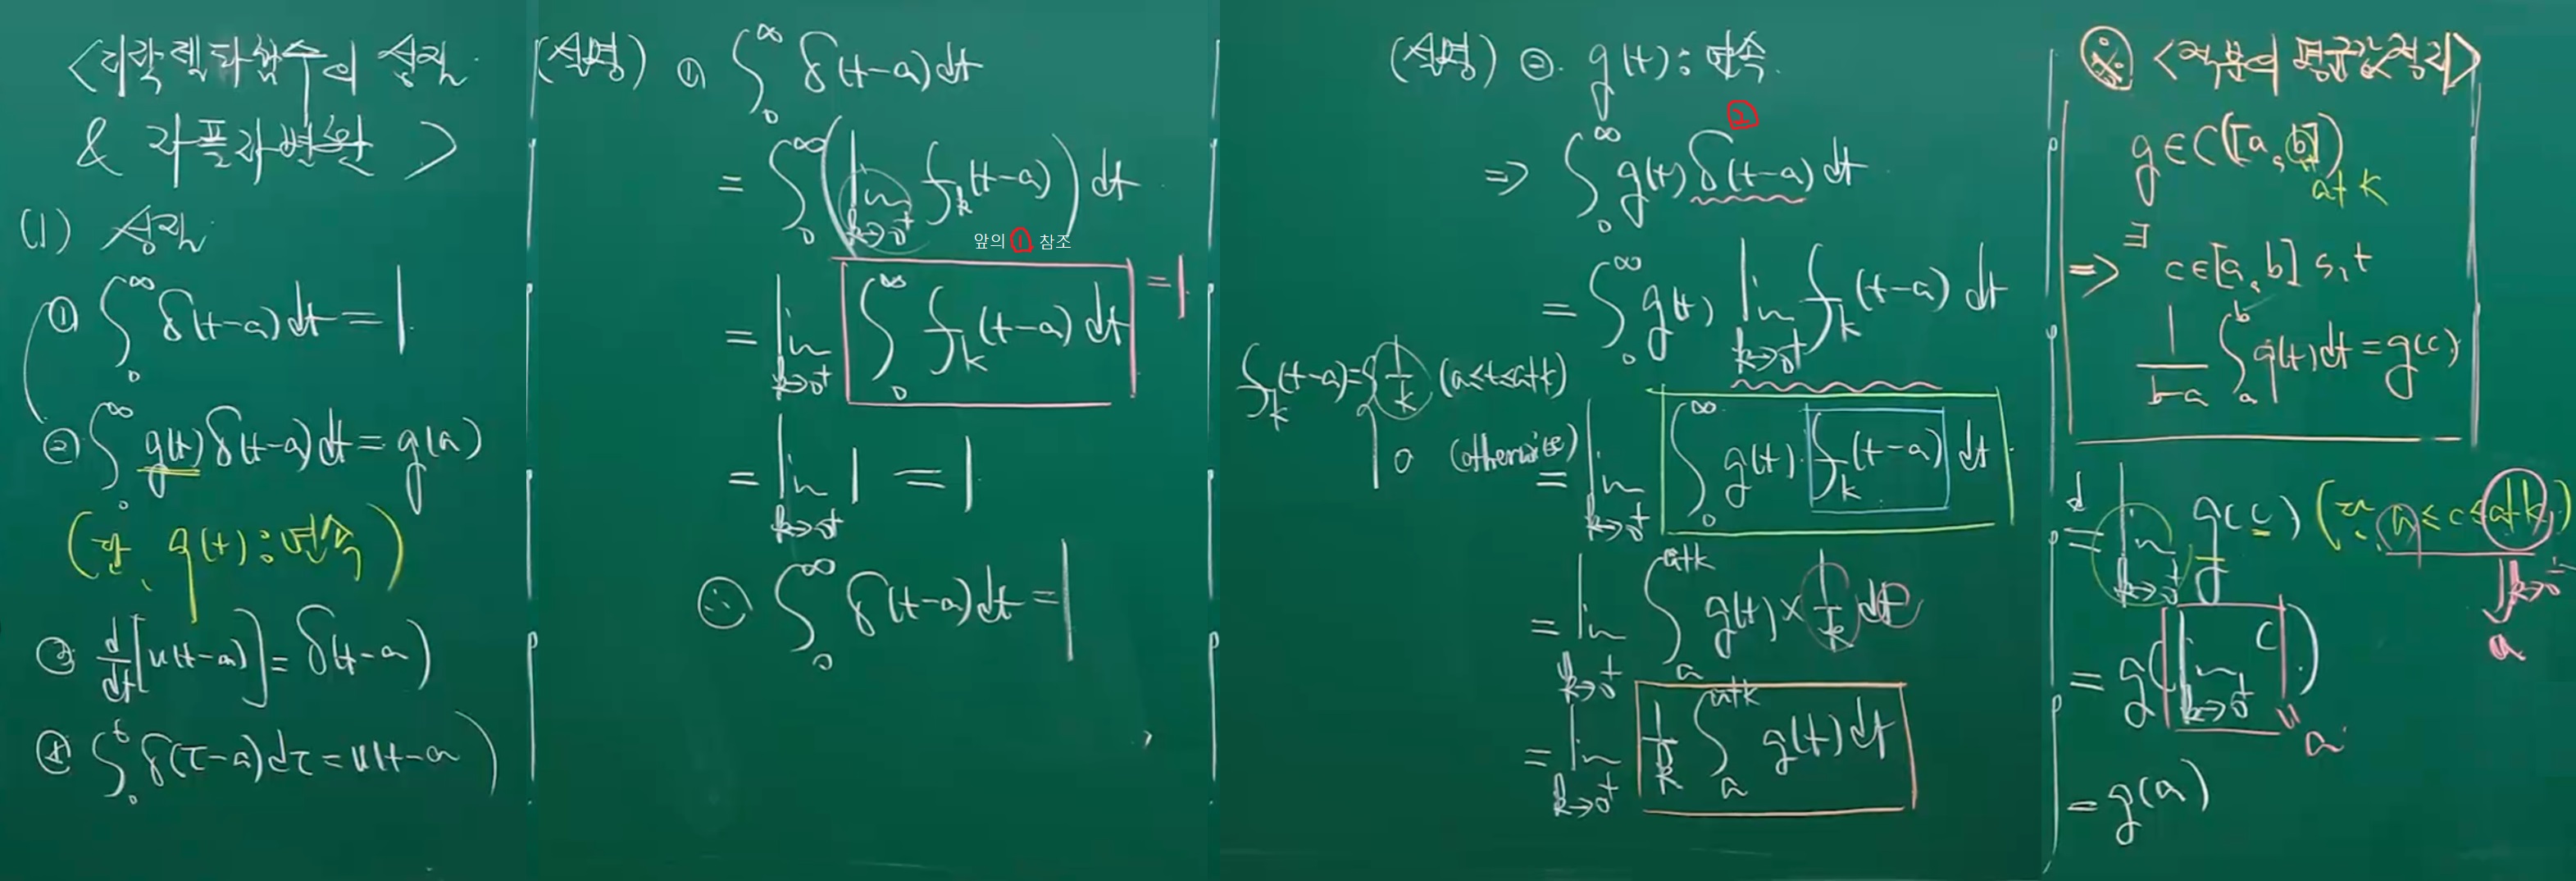 <디락델타함수의 성질
& 라플라변환>
(1) 성질
① ∫₀^∞ δ(t-a)dt = 1
② ∫₀^∞ g(t)δ(t-a)dt = g(a)
(단, g(t):연속)
③ d/dt[u(t-a)] = δ(t-a)
④ ∫₀^t δ(τ-a)dτ = u(t-a)
(설명) ① ∫₀^∞ δ(t-a)dt
= ∫₀^∞ (lim_{k→0⁺} f_k(t-a)) dt
앞의 1 참조
= lim_{k→0⁺} ∫₀^∞ f_k(t-a)dt = 1
= lim_{k→0⁺} 1 = 1
∴ ∫₀^∞ δ(t-a)dt = 1
(설명) ② g(t):연속
2
⇒ ∫₀^∞ g(t)δ(t-a)dt
= ∫₀^∞ g(t) lim_{k→0⁺} f_k(t-a)dt
f_k(t-a) = { 1/k (a≤t≤a+k)
0 (otherwise)
= lim_{k→0⁺} ∫₀^∞ g(t)·f_k(t-a)dt
= lim_{k→0⁺} ∫_a^{a+k} g(t)×1/k dt
= lim_{k→0⁺} 1/k ∫_a^{a+k} g(t)dt
※ <적분의 평균값정리>
g∈C([a,b])
a+k
⇒ ∃ c∈[a,b] s,t
1/(b-a) ∫_a^b g(t)dt = g(c)
= lim_{k→0⁺} g(c) (∵ a≤c≤a+k)
↓k→0⁺
a
= g(lim_{k→0⁺} c)
" a
= g(a)